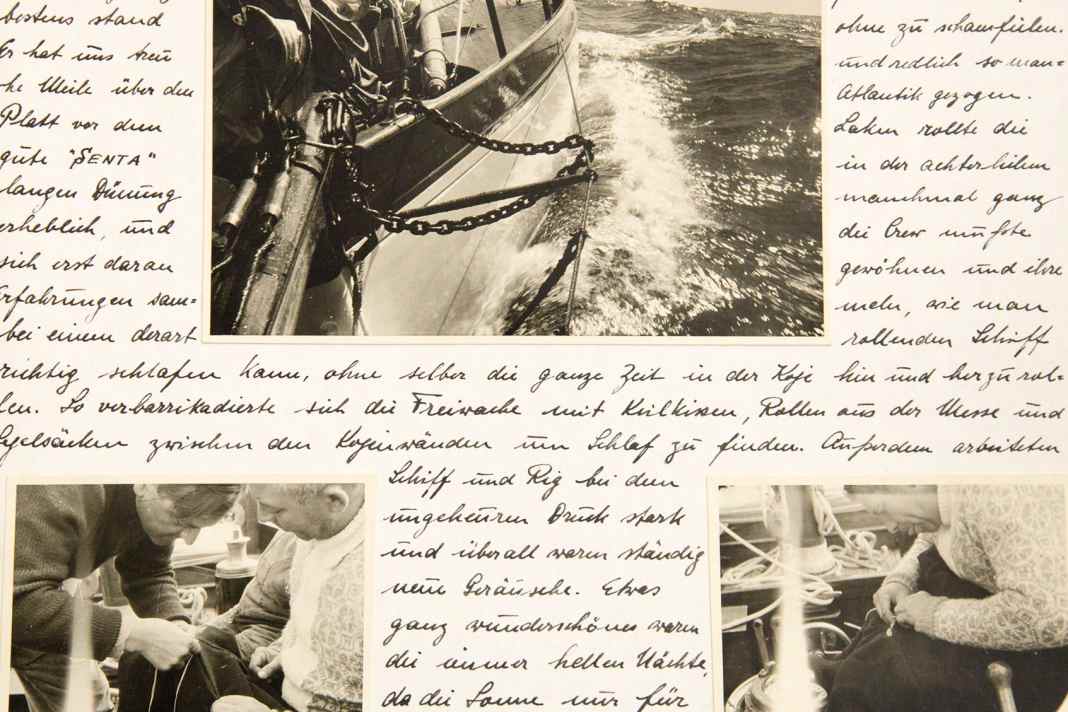 bestens stand ohne zu schamfielen.
Er hat uns treu und redlich so man=
che Meile über den Atlantik gezogen.
Platt vor dem Laken rollte die
gute "SENTA" in der achterlichen
langen Dünung manchmal ganz
erheblich, und die Crew mußte
sich erst daran gewöhnen und ihre
Erfahrungen sam= meln, wie man
bei einem derart rollenden Schiff
richtig schlafen kann, ohne selber die ganze Zeit in der Koje hin und herzurol-
len. So verbarrikadierte sich die Freiwache mit Keilkissen, Rollen aus der Messe und
Segelsäcken zwischen den Kojenwänden um Schlaf zu finden. Außerdem arbeiteten
Schiff und Rig bei dem
ungeheuren Druck stark
und überall waren ständig
neue Geräusche. Etwas
ganz wunderschönes waren
die immer hellen Nächte,
da die Sonne nur für